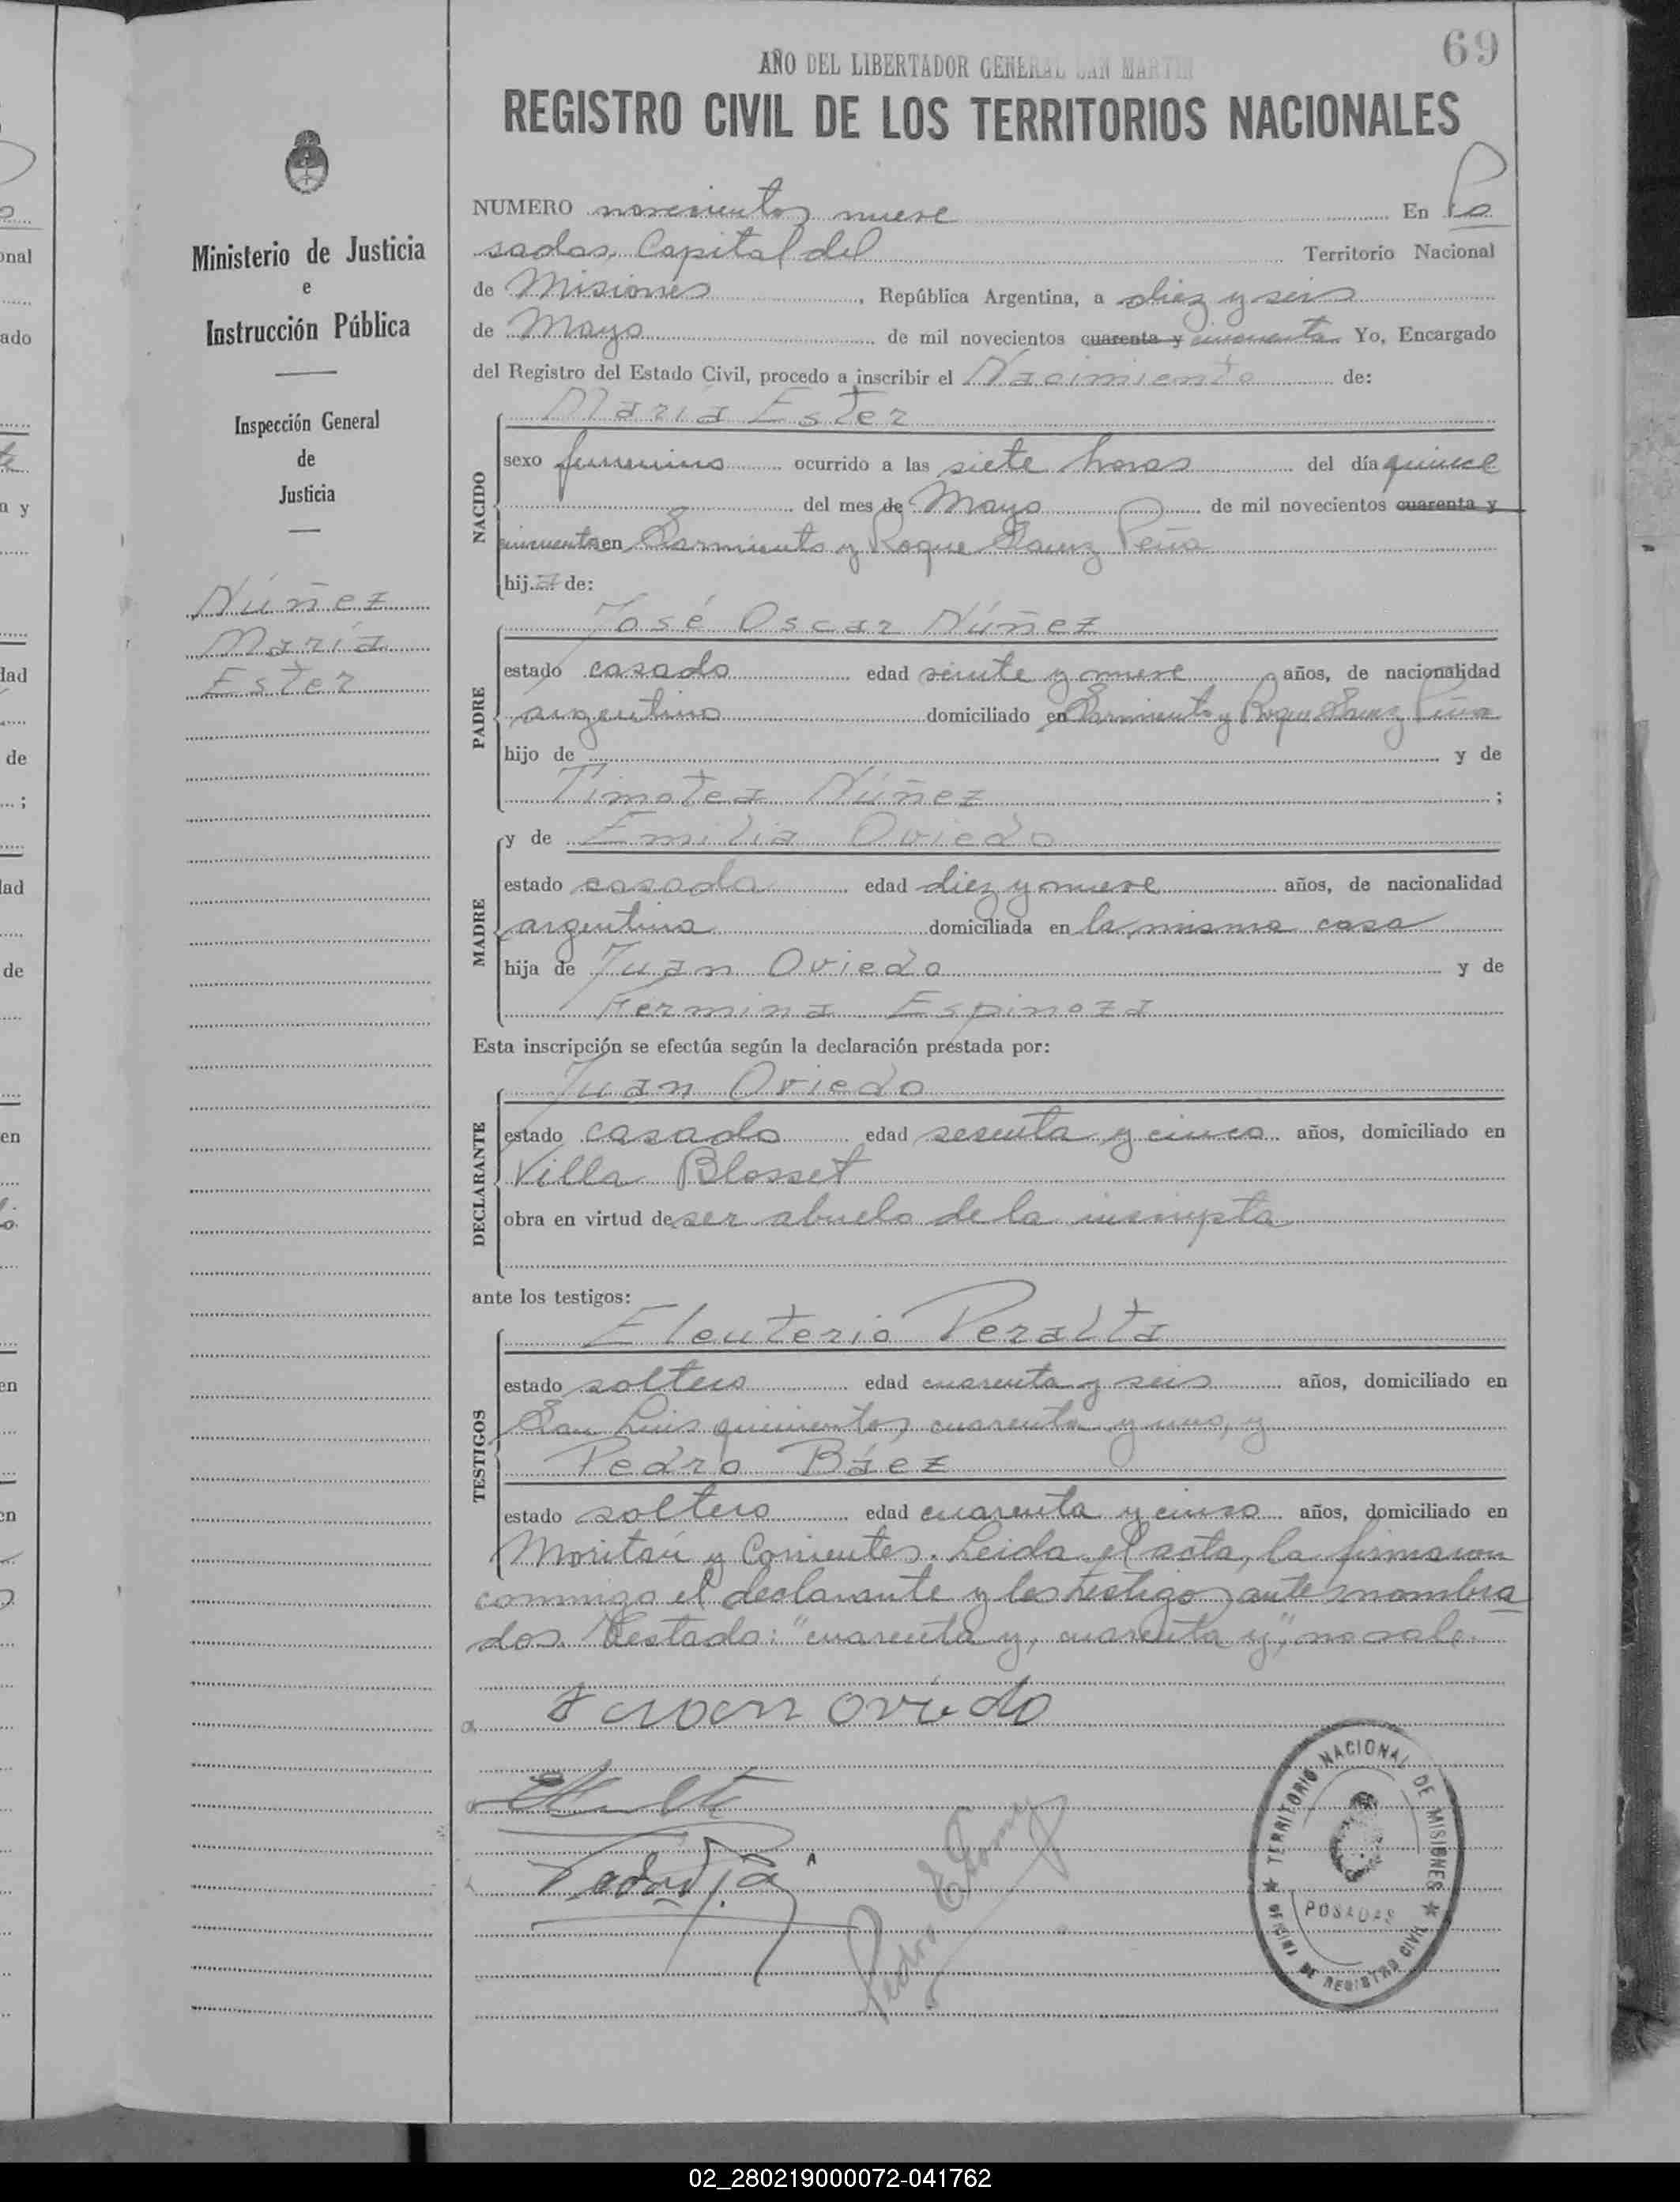 69
AÑO DEL LIBERTADOR GENERAL SAN MARTIN
REGISTRO CIVIL DE LOS TERRITORIOS NACIONALES
Ministerio de Justicia
e
Instrucción Pública
Inspección General
de
Justicia
Núñez
María
Ester
NUMERO novecientos nueve En Po
sadas, Capital del Territorio Nacional
de Misiones, República Argentina, a diez y seis
de Mayo de mil novecientos cuarenta y cincuenta Yo, Encargado
del Registro del Estado Civil, procedo a inscribir el Nacimiento de:
NACIDO
María Ester
sexo femenino ocurrido a las siete horas del día quince
del mes de Mayo de mil novecientos cuarenta y
cincuenta en Sarmiento y Roque Saenz Peña
hij a de:
PADRE
José Oscar Núñez
estado casado edad veinte y nueve años, de nacionalidad
argentino domiciliado en Sarmiento y Roque Saenz Peña
hijo de y de
Timotea Núñez ;
MADRE
y de Emilia Oviedo
estado casada edad diez y nueve años, de nacionalidad
argentina domiciliada en la misma casa
hija de Juan Oviedo y de
Hermina Espinoza
Esta inscripción se efectúa según la declaración prestada por:
DECLARANTE
Juan Oviedo
estado casado edad sesenta y cinco años, domiciliado en
Villa Blosset
obra en virtud de ser abuelo de la inscripta
ante los testigos:
TESTIGOS
Eleuterio Peralta
estado soltero edad cuarenta y seis años, domiciliado en
San Luis quinientos cuarenta y uno, y
Pedro Báez
estado soltero edad cuarenta y cinco años, domiciliado en
Moritán y Corrientes. Leida el acta, la firmaron
conmigo el declarante y los testigos antes nombra
dos. Testado: "cuarenta y, cuarenta y", no vale.
Juan oviedo
TERRITORIO NACIONAL DE MISIONES
POSADAS
OFICINA DE REGISTRO CIVIL
02_280219000072-041762